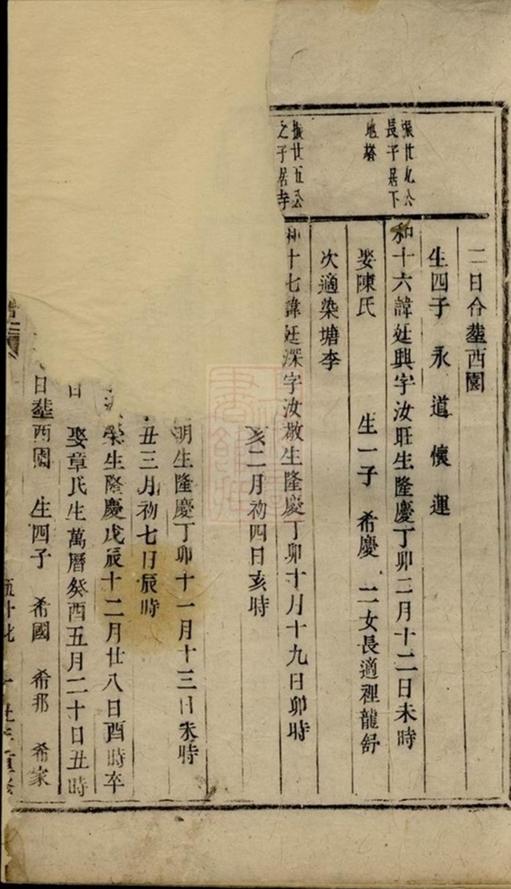 二日合塟西園
生四子 永 道 懷 運
振廿九公長子居下地塔
和十六諱廷興字汝旺生隆慶丁卯二月十二日未時
娶陳氏 生一子 希慶 二女長適裡龍舒
次適染塘李
振廿五公之子居寺
十七諱廷深字汝敬生隆慶丁卯十月十九日卯時
亥二月初四日亥時
明生隆慶丁卯十一月十三日未時
丑三月初七日辰時
榮生隆慶戊辰十二月廿八日酉時卒
娶章氏生萬曆癸酉五月二十日丑時
日塟西園 生四子 希國 希邦 希家